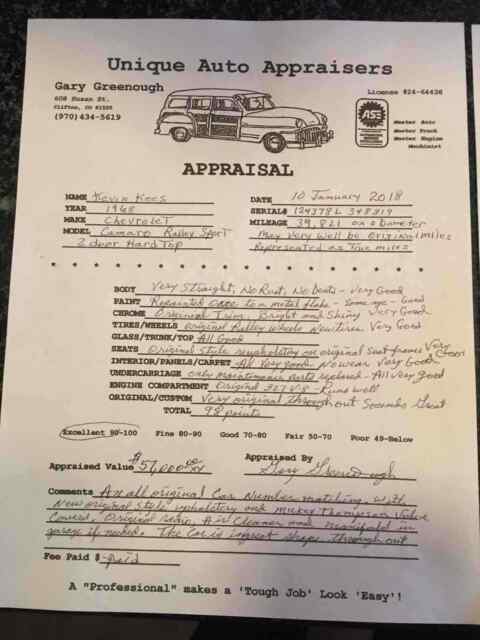 Unique Auto Appraisers
Gary Greenough
License #24-64436
608 Susan St.
Clifton, CO 81520
(970) 434-5619
ASE
Master Auto
Master Truck
Master Engine
Machinist
APPRAISAL
NAME Kevin Kees
DATE 10 January 2018
YEAR 1968
SERIAL# 124378L 348319
MAKE Chevrolet
MILEAGE 39,821 on odometer
MODEL Camaro Ralley Sport
May Very Well be Original miles
2 door Hard Top
Represented as True miles
* * * * * * * * * * * * *
BODY Very Straight, No Rust, No Dents - Very Good
PAINT Repainted once to a metal flake - Some age - Good
CHROME Original Trim, Bright and Shiny Very Good
TIRES/WHEELS Original Ralley Wheels New tires Very Good
GLASS/TRUNK/TOP All Good
SEATS Original Style reupholstry on original seat frames Very Good
INTERIOR/PANELS/CARPET All Very good No wear Very Good
UNDERCARRIAGE only maintenance parts replaced - All Very good
ENGINE COMPARTMENT Original 327 V-8 - Runs well
ORIGINAL/CUSTOM Very original throughout Sounds Great
TOTAL 98 points
Excellent 90-100 Fine 80-90 Good 70-80 Fair 50-70 Poor 49-Below
Appraised Value $57,000.00
Appraised By Gary Greenough
Comments An all original Car Number matching, with
New original Style upholstery and Mickey Thompson Valve
Covers. Original Air Cleaner and manifold in
garage if needed. The Car is in great shape throughout
Fee Paid $ paid
A "Professional" makes a 'Tough Job' Look 'Easy'!